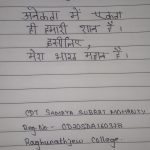 अनेकता में एकता
ही हमारी शान है।
इसीलिए,
मेरा भारत महान है।
CDT SAMAYA SUBRAT MOHANTY
Regd No-
Raghunathjew College